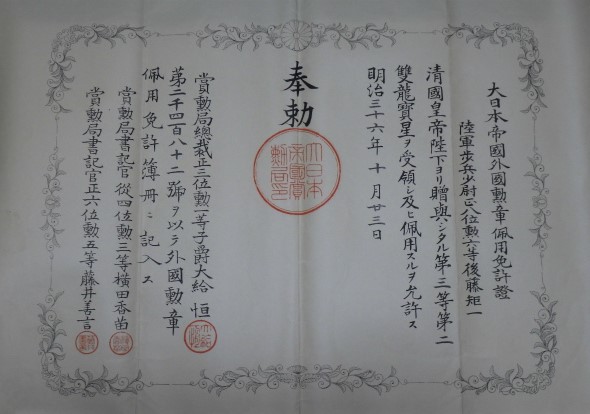 大日本帝國外國勲章佩用免許證
陸軍歩兵少尉正八位勲六等後藤矩一
清國皇帝陛下ヨリ贈與シタル第三等第二
雙龍寶星ヲ受領シ及ヒ佩用スルヲ允許ス
明治三十六年十月廿三日
奉勅
大日本
帝國賞
勲局印
賞勲局總裁正三位勲一等子爵大給恒
第二千四百八十二號ヲ以テ外國勲章
佩用免許簿冊ニ記入ス
賞勲局書記官從四位勲三等横田香苗
賞勲局書記官正六位勲五等藤井善言